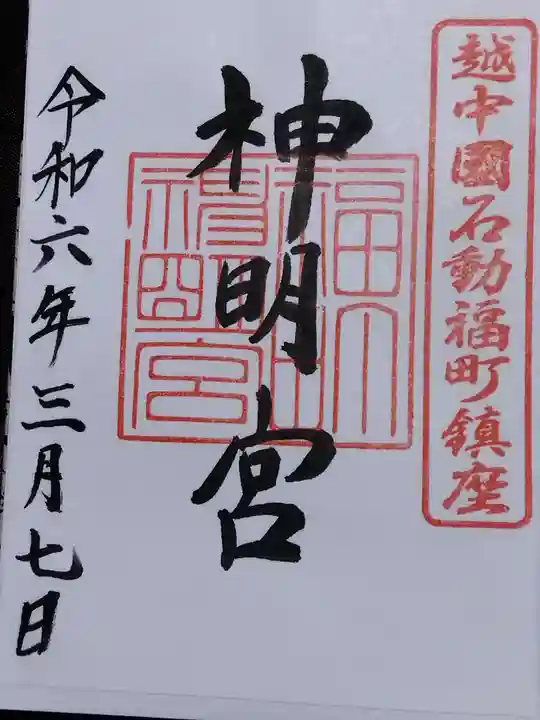 越中國石動福町鎮座
神明宮
令和六年三月七日